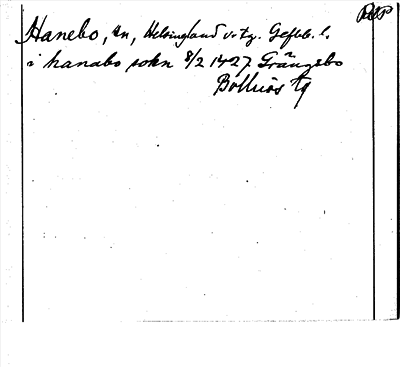 Hanebo, sn, Helsingland v. tg. Gefleb. l.
i hanabo sokn 8/2 1427. Grängsbo
Bollnäs tg